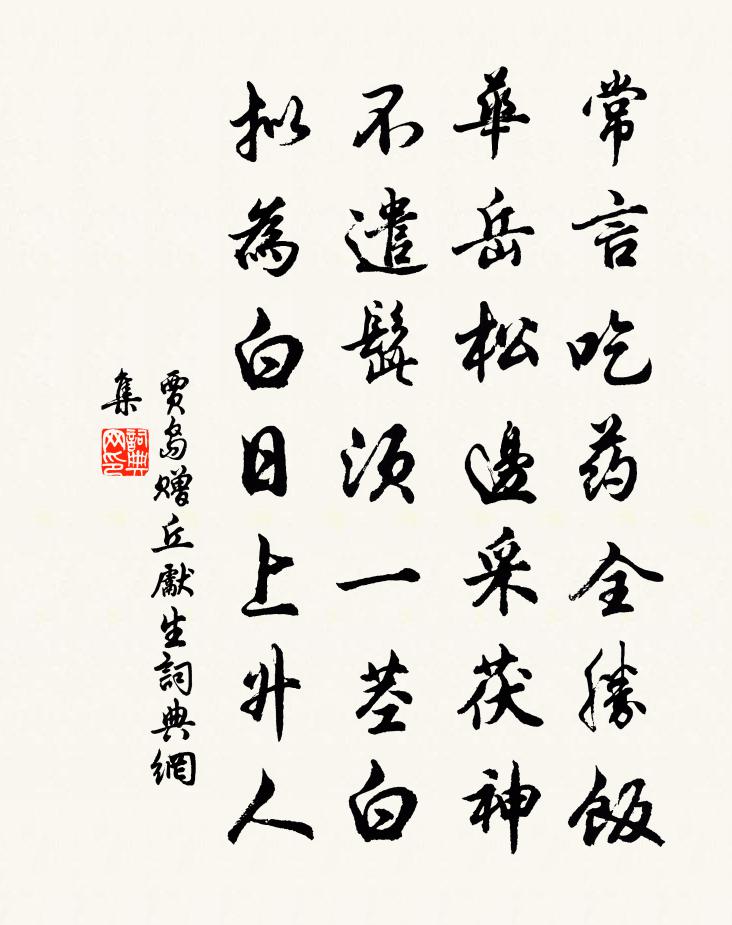 常言吃药全勝飯
華岳松邊采茯神
不遣髭須一茎白
拟為白日上升人
賈島赠丘獻生詞典網
集
詞典
网印